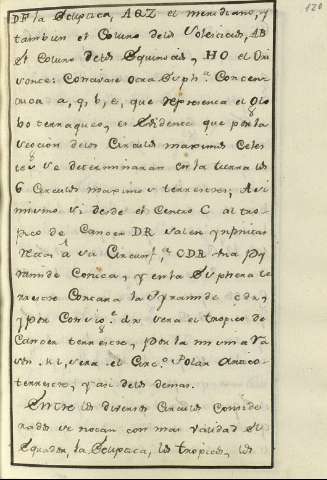 120
DF la Ecliptica, AQZ el meridiano, y
tambien el Coluro delos Solsticios, AB
el Coluro delos Equinocios, y HO el Ori
sonte: Concivase otra Sph.ª Concen
trica a, q, b, e, que representa el Glo
bo terraqueo, es Evidente que por la
seccion delos Circulos maximos Celes
tes se determinaran en la tierra los
6 Circulos maximos terrestres; Asi
mismo si desde el Centro C al tro
pico de Cancer DR salen ynfinitas
rectas â su Circunf.ª, CDR sera Py
ramide Conica, y en la Sphera te
rrestre Cortara la Pyramide cdr, y
por Consig.e dr sera el tropico de
Cancer terrestre, por la misma ra
son, Kl, sera el Circ.o Polar Artico
terrestre, y asi delos demas.
Entre los diversos Circulos conside
rados se notan con mas validad el
Equador, la Ecliptica, los tropicos, los